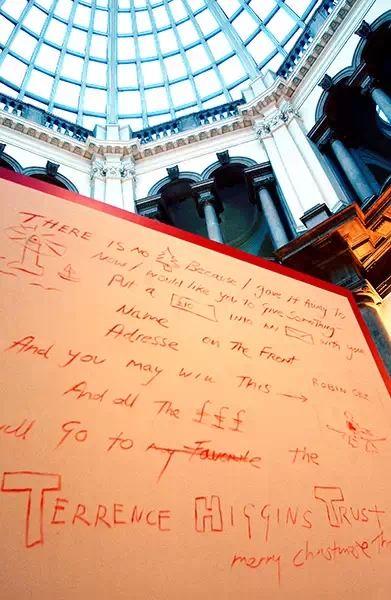 THERE IS NO Because I gave it away To
Now I would like you to give something
Put a £10 into an with your
Name on The Front
Adresse
And you may win This → ROBIN SEZ
And all The £££
will Go to my Favourite the
TERRENCE HIGGINS TRUST
merry christmase